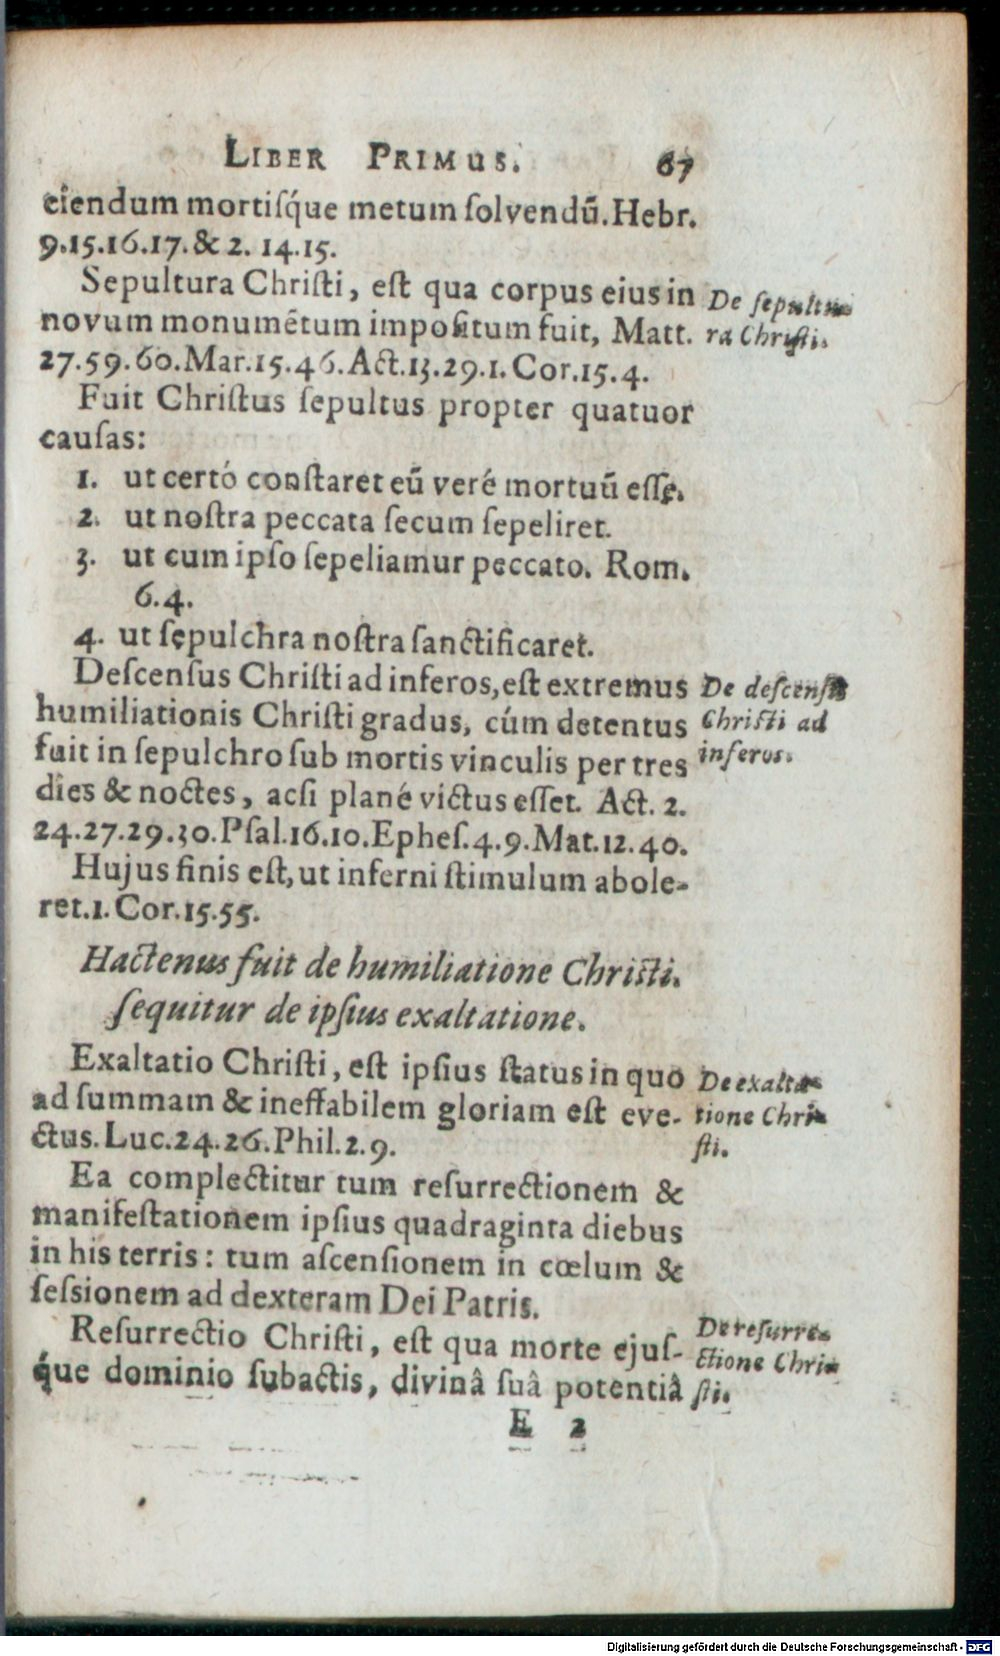 LIBER PRIMUS. 67
ciendum mortisq́ue metum solvendū. Hebr.
9.15.16.17. & 2. 14.15.
Sepultura Christi, est qua corpus eius in
novum monumētum impositum fuit, Matt.
27.59.60. Mar.15.46. Act.13.29.1. Cor.15.4.
De sepultu-
ra Christi.
Fuit Christus sepultus propter quatuor
causas:
1. ut certó constaret eū veré mortuū esse.
2. ut nostra peccata secum sepeliret.
3. ut cum ipso sepeliamur peccato. Rom.
6.4.
4. ut sepulchra nostra sanctificaret.
Descensus Christi ad inferos, est extremus
humiliationis Christi gradus, cúm detentus
fuit in sepulchro sub mortis vinculis per tres
dies & noctes, acsi plané victus esset. Act. 2.
24.27.29.30. Psal.16.10. Ephes.4.9. Mat.12.40.
De descensu
Christi ad
inferos.
Hujus finis est, ut inferni stimulum abole-
ret.1. Cor.15.55.
Hactenus fuit de humiliatione Christi.
sequitur de ipsius exaltatione.
Exaltatio Christi, est ipsius status in quo
ad summam & ineffabilem gloriam est eve-
ctus. Luc.24.26. Phil.2.9.
De exalta-
tione Chri-
sti.
Ea complectitur tum resurrectionem &
manifestationem ipsius quadraginta diebus
in his terris: tum ascensionem in cœlum &
sessionem ad dexteram Dei Patris.
Resurrectio Christi, est qua morte ejus-
q́ue dominio subactis, divinâ suâ potentiâ
De resurre-
ctione Chri-
sti.
E 2
Digitalisierung gefördert durch die Deutsche Forschungsgemeinschaft - DFG